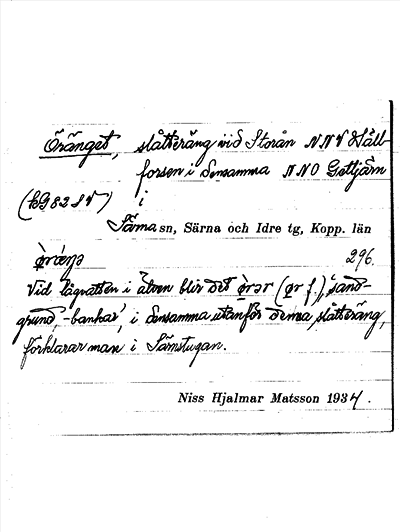 Öränget, slåtteräng vid Storån NNV Håll-
forsen i densamma NNO Gettjärn
(kG 82 S V) i
Särna sn, Särna och Idre tg, Kopp. län
296.
Vid lågvatten i älven blir det (f.), "sand-
grund, -bankar", i densamma utanför denna slåtteräng,
förklarar man i Särnstugan.
Niss Hjalmar Matsson 1934.